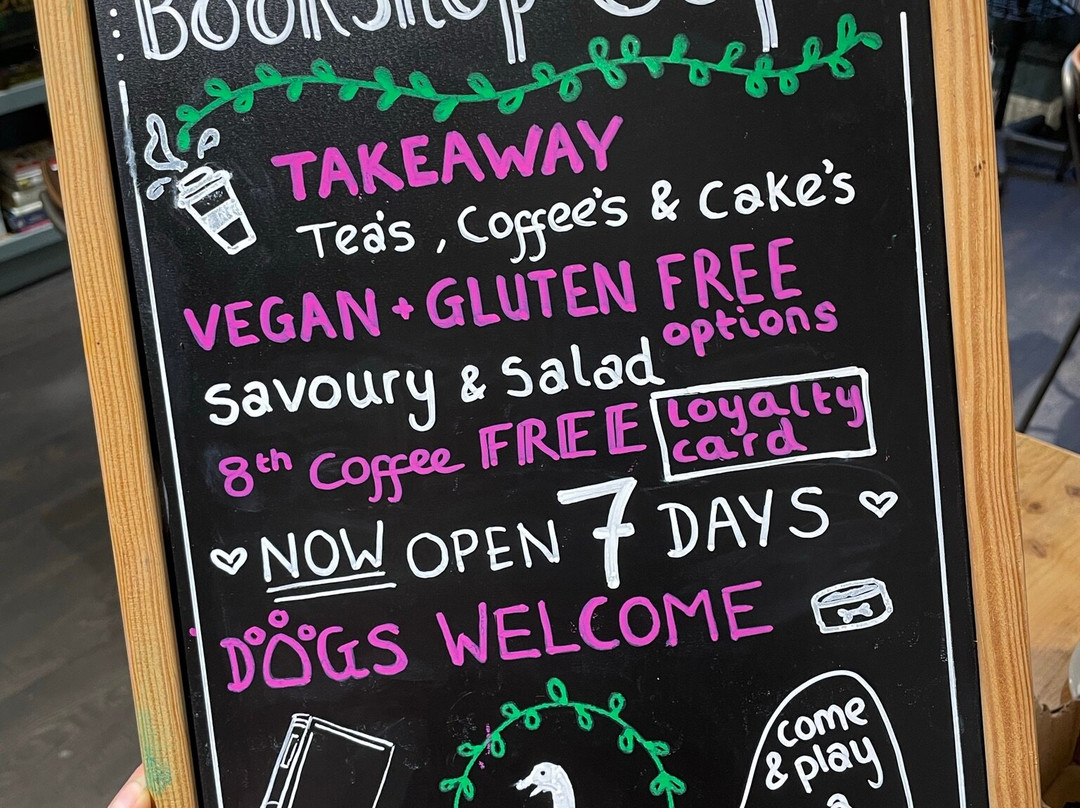 BOOKSHOP
TAKEAWAY
Tea's, Coffee's & Cake's
VEGAN + GLUTEN FREE
options
Savoury & Salad
8th Coffee FREE loyalty
card
NOW OPEN 7 DAYS
DOGS WELCOME
come
& play
a